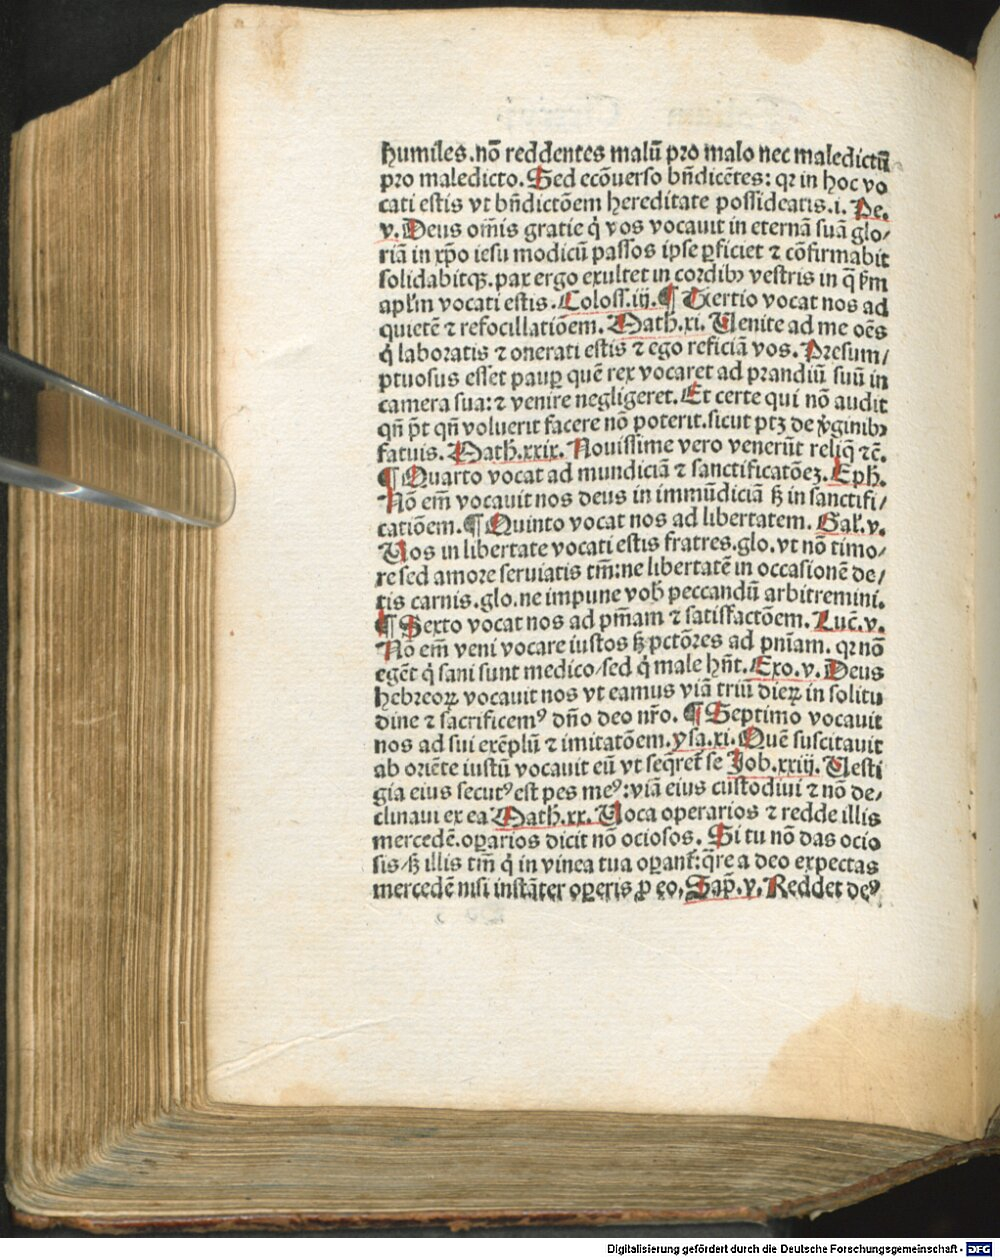 humiles.nō reddentes malū pro malo nec maledictū
pro maledicto.Sed ecōuerso bn̄dicētes: qꝛ in hoc vo
cati estis vt bn̄dictōem hereditate possideatis.i. Pe.
v.Deus om̄is gratie q̇ vos vocauit in eternā suā glo⸗
riā in xp̄o iesu modicū passos ipse ꝑficiet ⁊ cōfirmabit
solidabitqꝫ.pax ergo exultet in cordibꝰ vestris in q̄ ẜm
apl̓m vocati estis.Coloss.iij.¶ Tertio vocat nos ad
quietē ⁊ refocillatiōem. Math.xi. Uenite ad me oēs
q̇ laboratis ⁊ onerati estis ⁊ ego reficiā vos.Presum⸗
ptuosus esset pauꝑ quē rex vocaret ad prandiū suū in
camera sua:⁊ venire negligeret.Et certe qui nō audit
qn̄ pōt qn̄ voluerit facere nō poterit.sicut ptꝫ de v̓ginibꝫ
fatuis. Math.xxix. Nouissime vero venerūt reliq̄ ⁊c̄.
¶ Quarto vocat ad mundiciā ⁊ sanctificatōeꝫ.Eph.
Nō em̄ vocauit nos deus in immūdiciā ẜꝫ in sanctifi⸗
catiōem.¶ Quinto vocat nos ad libertatem. Gal̓.v.
Uos in libertate vocati estis fratres.glo.vt nō timo⸗
re sed amore seruiatis tm̄:ne libertatē in occasionē de⸗
tis carnis.glo.ne impune vob̓ peccandū arbitremini.
¶ Sexto vocat nos ad pn̄iam ⁊ satisfactōem. Luc̄.v.
Nō em̄ veni vocare iustos ẜꝫ pctōres ad pn̄iam. qꝛ nō
egēt q̇ sani sunt medico⸗sed q̇ male hn̄t.Exo.v.Deus
hebreoꝝ vocauit nos vt eamus viā triū dieꝝ in solitu
dine ⁊ sacrificemꝰ dn̄o deo nr̄o. ¶ Septimo vocauit
nos ad sui exēplū ⁊ imitatōem.ysa.xi.Quē suscitauit
ab oriēte iustū vocauit eū vt seq̄ret̓ se Job.xxiij. Uesti
gia eius secutꝰ est pes meꝰ:viā eius custodiui ⁊ nō de⸗
clinaui ex ea Math.xx. Uoca operarios ⁊ redde illis
mercedē.oꝑarios dicit nō ociosos. Si tu nō das ocio
sis⸗ẜꝫ illis tm̄ q̇ in vinea tua oꝑant̓:q̄re a deo expectas
mercedē nisi instāter oꝑeris ꝓ eo. Sap̄.v. Reddet deꝰ
Digitalisierung gefördert durch die Deutsche Forschungsgemeinschaft - DFG